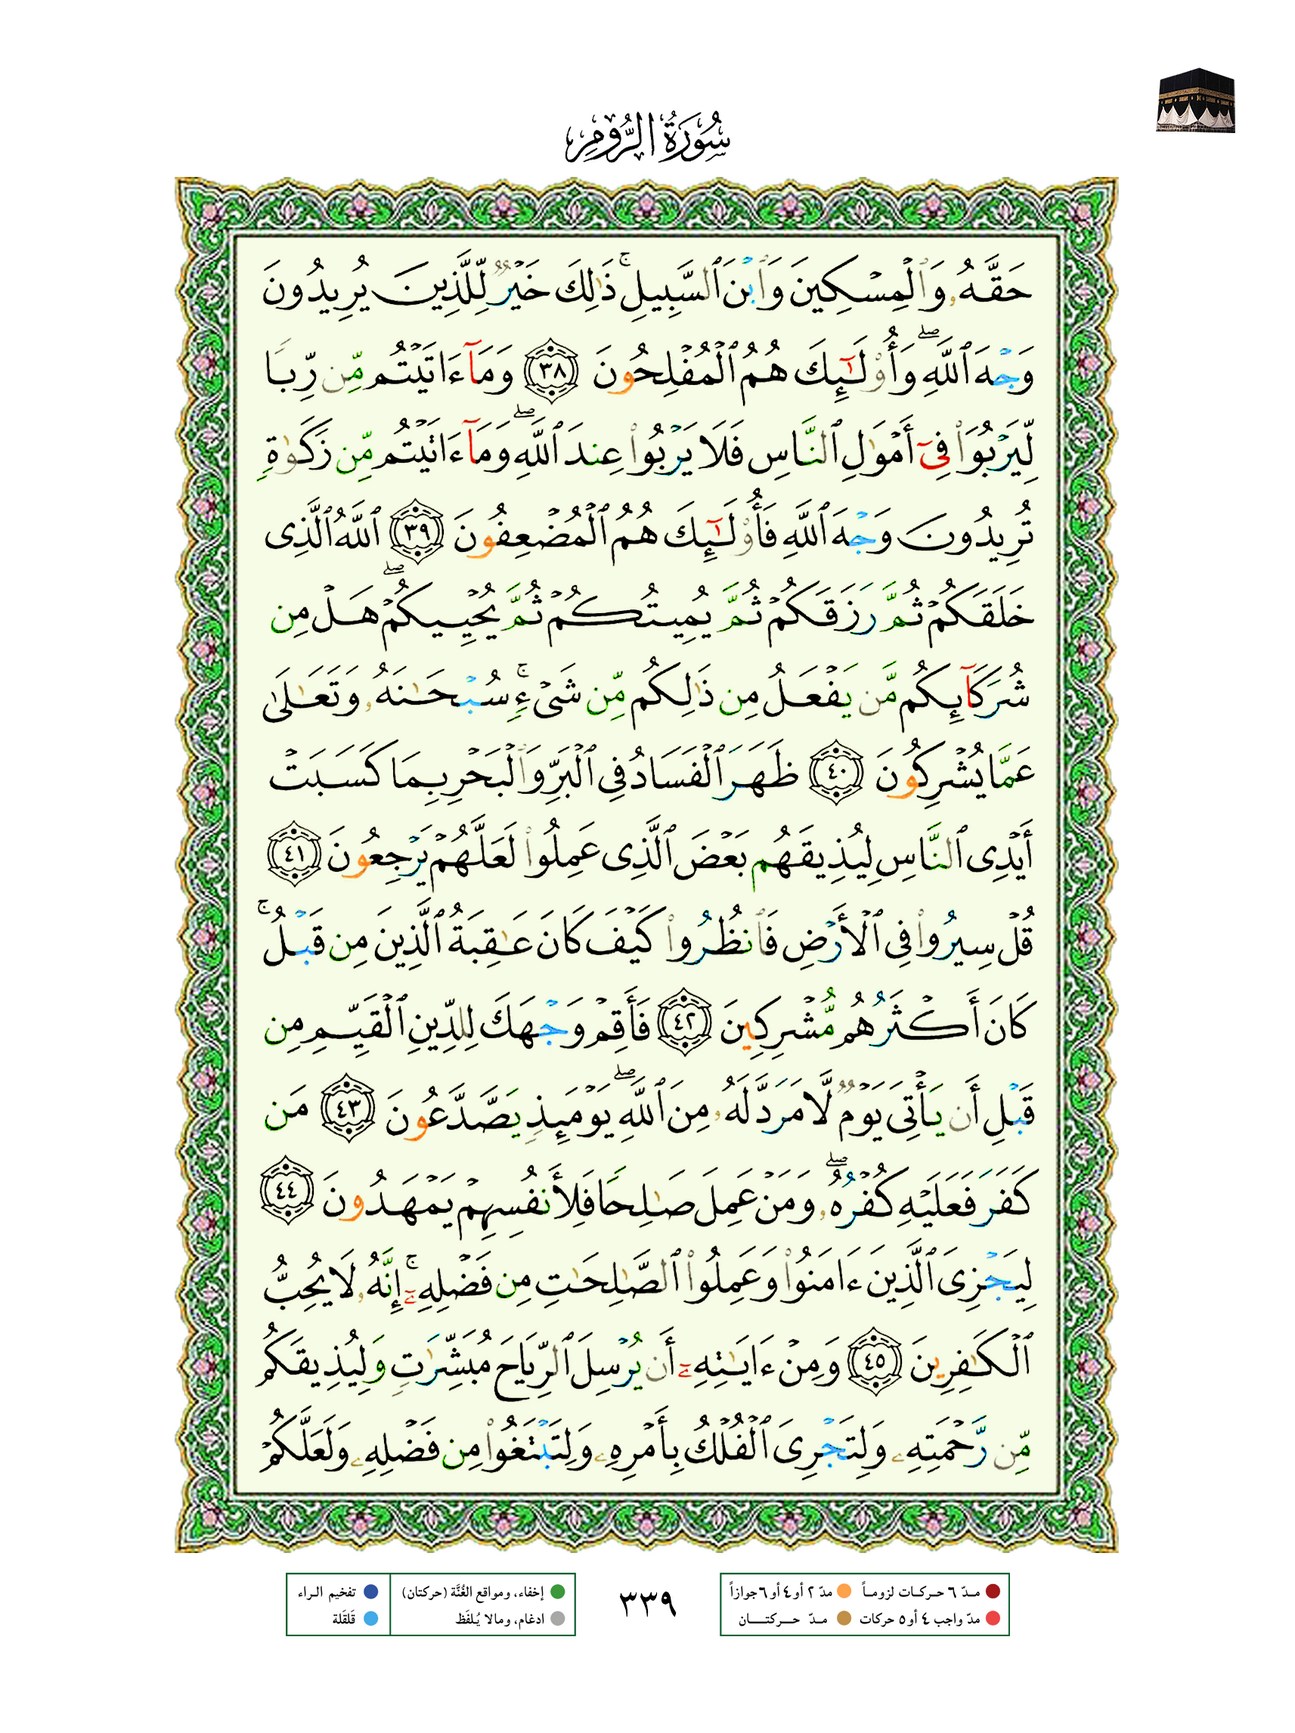 سُورَةُ الرُّومِ
حَقَّهُۥ وَٱلْمِسْكِينَ وَٱبْنَ ٱلسَّبِيلِ ۚ ذَٰلِكَ خَيْرٌ لِّلَّذِينَ يُرِيدُونَ
وَجْهَ ٱللَّهِ ۖ وَأُو۟لَـٰٓئِكَ هُمُ ٱلْمُفْلِحُونَ ٣٨ وَمَآ ءَاتَيْتُم مِّن رِّبًا
لِّيَرْبُوَا۟ فِىٓ أَمْوَٰلِ ٱلنَّاسِ فَلَا يَرْبُوا۟ عِندَ ٱللَّهِ ۖ وَمَآ ءَاتَيْتُم مِّن زَكَوٰةٍ
تُرِيدُونَ وَجْهَ ٱللَّهِ فَأُو۟لَـٰٓئِكَ هُمُ ٱلْمُضْعِفُونَ ٣٩ ٱللَّهُ ٱلَّذِى
خَلَقَكُمْ ثُمَّ رَزَقَكُمْ ثُمَّ يُمِيتُكُمْ ثُمَّ يُحْيِيكُمْ ۖ هَلْ مِن
شُرَكَآئِكُم مَّن يَفْعَلُ مِن ذَٰلِكُم مِّن شَىْءٍ ۚ سُبْحَـٰنَهُۥ وَتَعَـٰلَىٰ
عَمَّا يُشْرِكُونَ ٤٠ ظَهَرَ ٱلْفَسَادُ فِى ٱلْبَرِّ وَٱلْبَحْرِ بِمَا كَسَبَتْ
أَيْدِى ٱلنَّاسِ لِيُذِيقَهُم بَعْضَ ٱلَّذِى عَمِلُوا۟ لَعَلَّهُمْ يَرْجِعُونَ ٤١
قُلْ سِيرُوا۟ فِى ٱلْأَرْضِ فَٱنظُرُوا۟ كَيْفَ كَانَ عَـٰقِبَةُ ٱلَّذِينَ مِن قَبْلُ ۚ
كَانَ أَكْثَرُهُم مُّشْرِكِينَ ٤٢ فَأَقِمْ وَجْهَكَ لِلدِّينِ ٱلْقَيِّمِ مِن
قَبْلِ أَن يَأْتِىَ يَوْمٌ لَّا مَرَدَّ لَهُۥ مِنَ ٱللَّهِ ۖ يَوْمَئِذٍ يَصَّدَّعُونَ ٤٣ مَن
كَفَرَ فَعَلَيْهِ كُفْرُهُۥ ۖ وَمَنْ عَمِلَ صَـٰلِحًا فَلِأَنفُسِهِمْ يَمْهَدُونَ ٤٤
لِيَجْزِىَ ٱلَّذِينَ ءَامَنُوا۟ وَعَمِلُوا۟ ٱلصَّـٰلِحَـٰتِ مِن فَضْلِهِۦٓ ۚ إِنَّهُۥ لَا يُحِبُّ
ٱلْكَـٰفِرِينَ ٤٥ وَمِنْ ءَايَـٰتِهِۦٓ أَن يُرْسِلَ ٱلرِّيَاحَ مُبَشِّرَٰتٍ وَلِيُذِيقَكُم
مِّن رَّحْمَتِهِۦ وَلِتَجْرِىَ ٱلْفُلْكُ بِأَمْرِهِۦ وَلِتَبْتَغُوا۟ مِن فَضْلِهِۦ وَلَعَلَّكُمْ
مـدّ ٦ حـركـات لزومـاً مدّ ٢ أو ٤ أو ٦ جوازاً
مدّ واجب ٤ أو ٥ حركات مـدّ حـــركتــــان
٣٣٩
إخفاء، ومواقع الغُنَّة (حركتان) تفخيم الراء
ادغام، ومالا يُلفَظ قَلقَلة